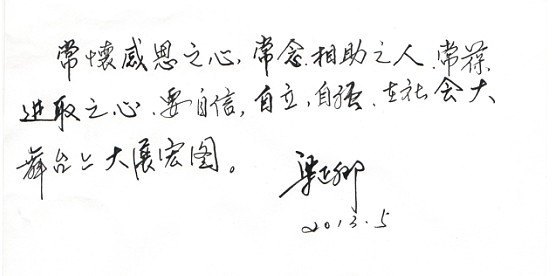 常怀感恩之心,常念相助之人,常葆
进取之心.要自信,自立,自强.在社会大
舞台上大展宏图。
梁
2013.5